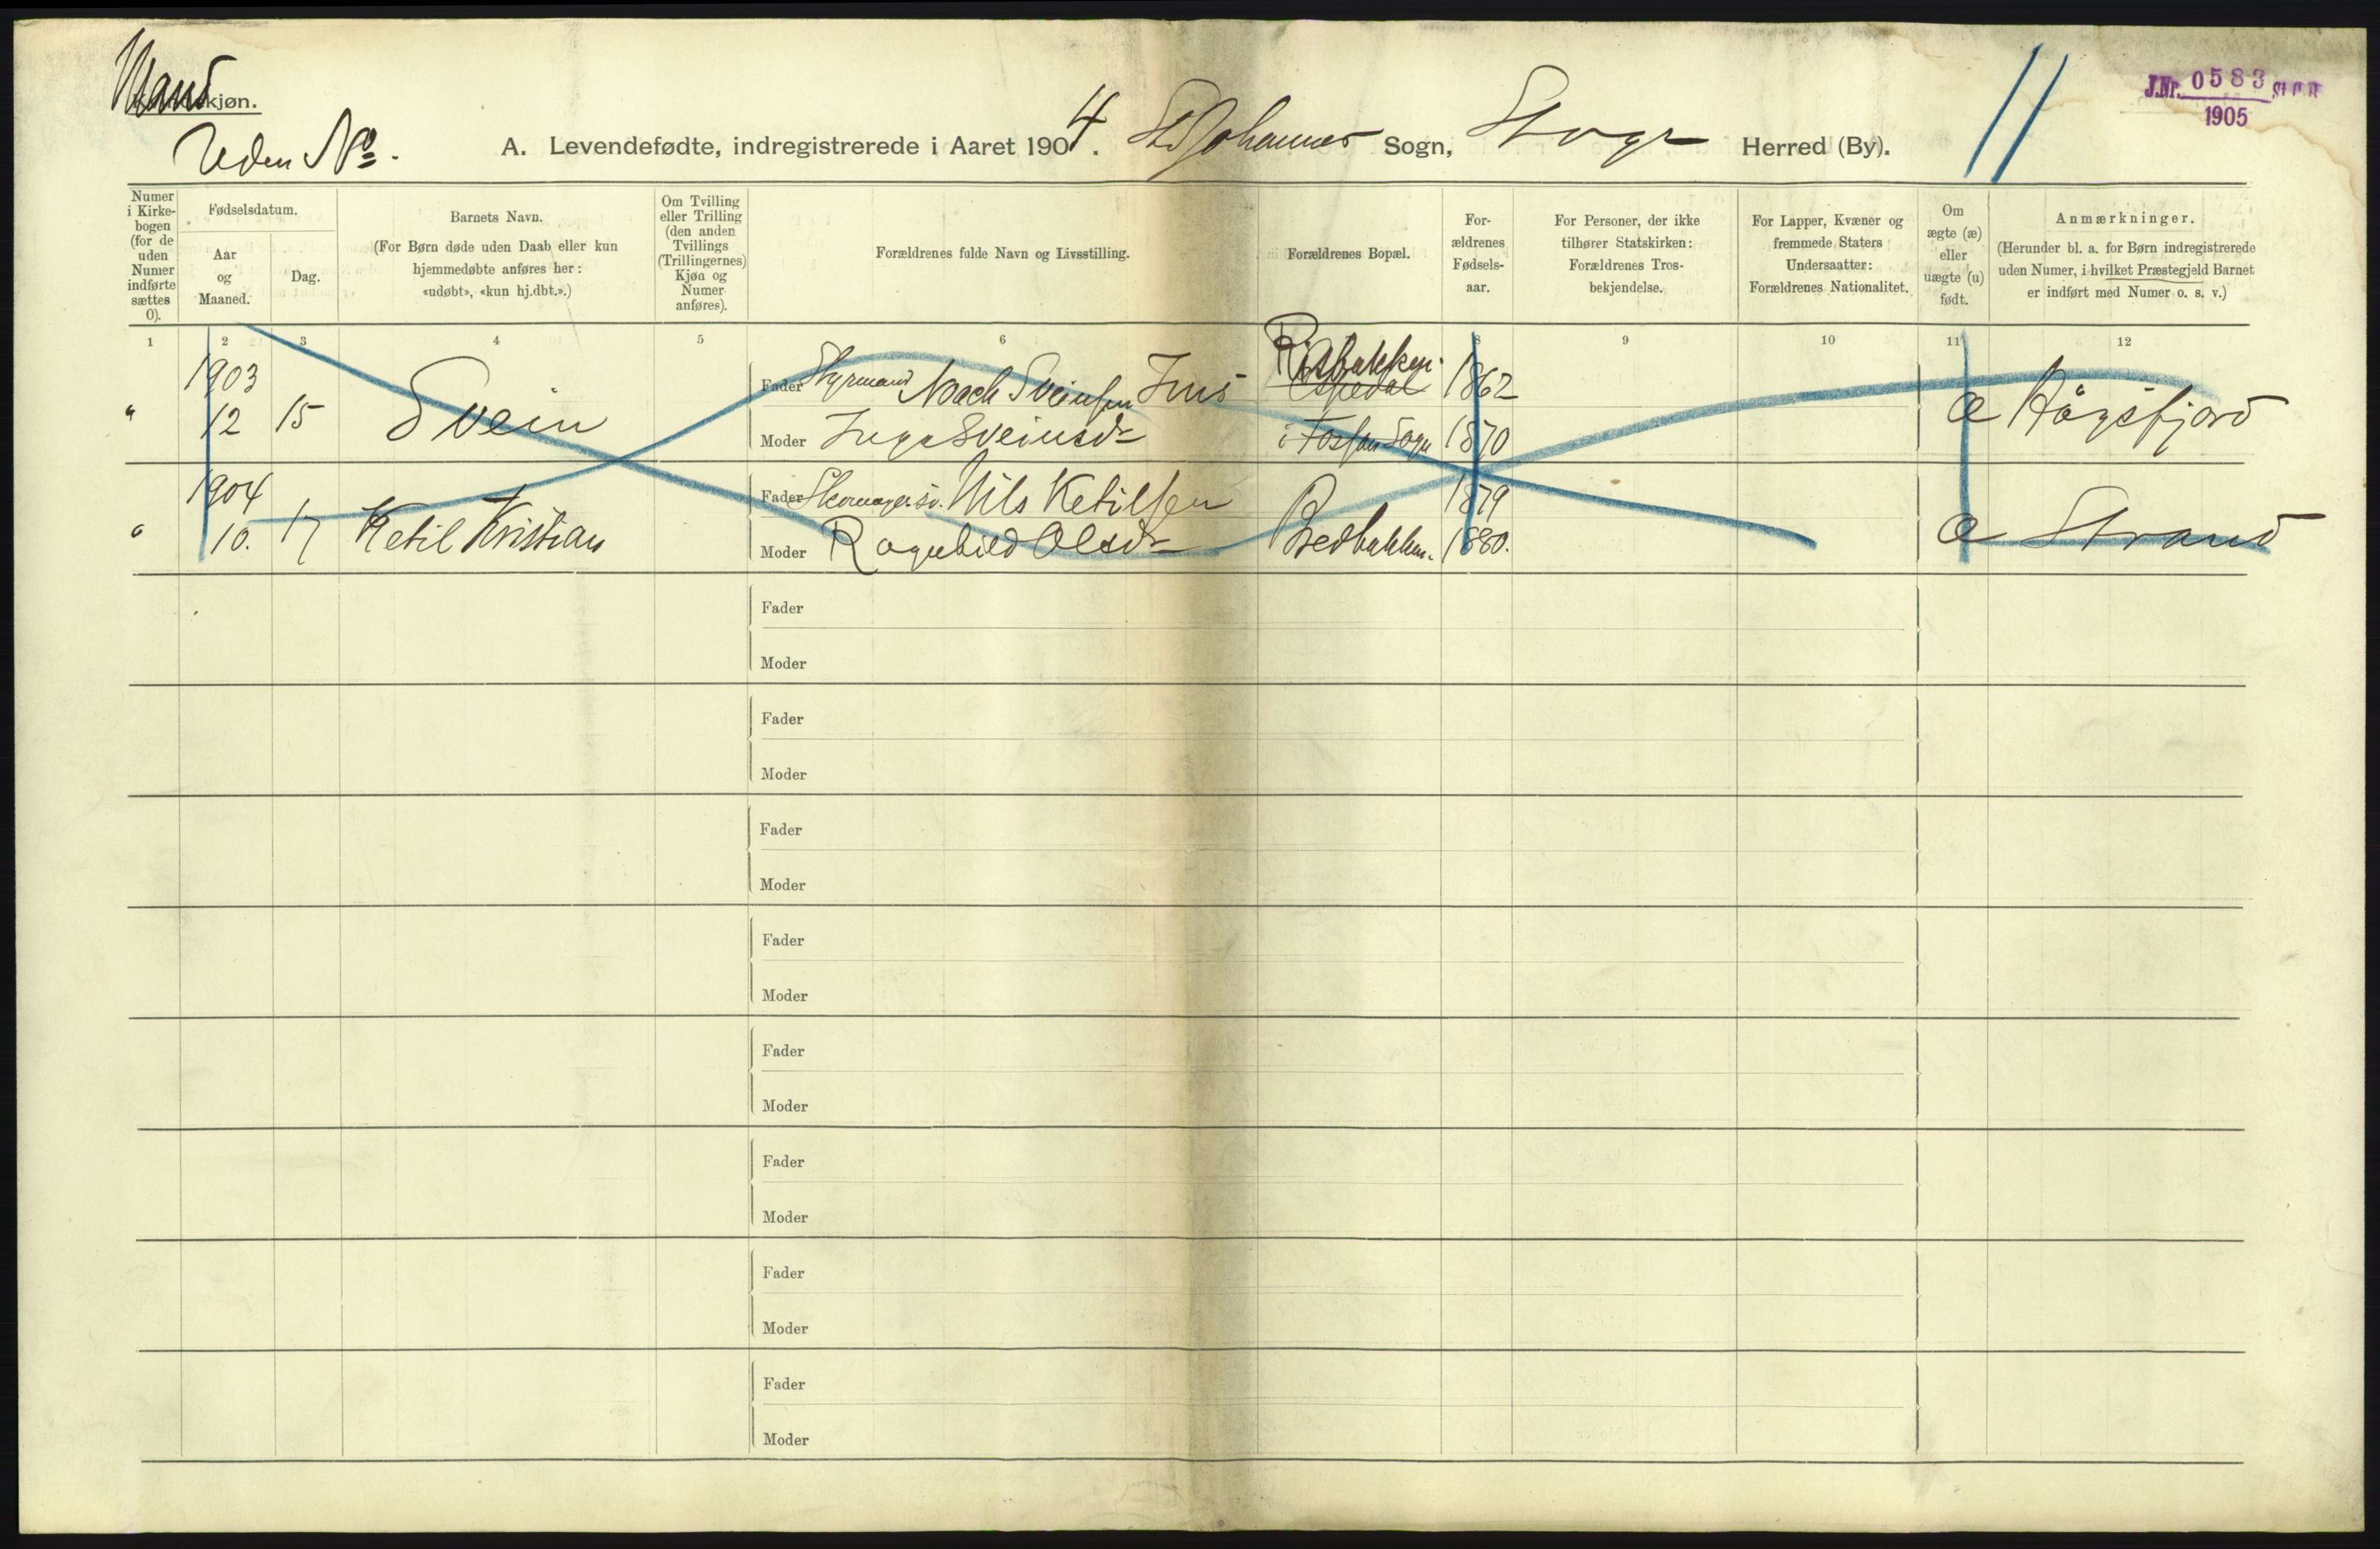 Mand
kjøn.
Uden No.
A. Levendefødte, indregistrerede i Aaret 1904. St Johannes Sogn, Stvgr Herred (By).
J.Nr. 0583
1905
Numer i Kirke-bogen (for de uden Numer indførte sættes 0).
Fødselsdatum.
Aar og Maaned.
Dag.
Barnets Navn.
(For Børn døde uden Daab eller kun hjemmedøbte anføres her: «udøbt», «kun hj.dbt.».)
Om Tvilling eller Trilling (den anden Tvillings (Trillingernes) Kjøn og Numer anføres).
Forældrenes fulde Navn og Livsstilling.
Forældrenes Bopæl.
For-ældrenes Fødsels-aar.
For Personer, der ikke tilhører Statskirken: Forældrenes Tros-bekjendelse.
For Lapper, Kvæner og fremmede Staters Undersaatter: Forældrenes Nationalitet.
Om ægte (æ) eller uægte (u) født.
Anmærkninger.
(Herunder bl. a. for Børn indregistrerede uden Numer, i hvilket Præstegjeld Barnet er indført med Numer o. s. v.)
1 2 3 4 5 6 8 9 10 11 12
1903
" 12 15 Svein
Fader Styrmand Noach Sveinsen Ims Risbakken. Espedal 1862
Moder Inga Sveinsdr i Fossan Sogn 1870
æ Høgsfjord
1904
" 10. 17 Ketil Kristian
Fader Skomagersv. Nils Ketilsen 1879
Moder Ragnhild Olsdr Bedbakken. 1880.
æ Strand
Fader
Moder
Fader
Moder
Fader
Moder
Fader
Moder
Fader
Moder
Fader
Moder
Fader
Moder
Fader
Moder